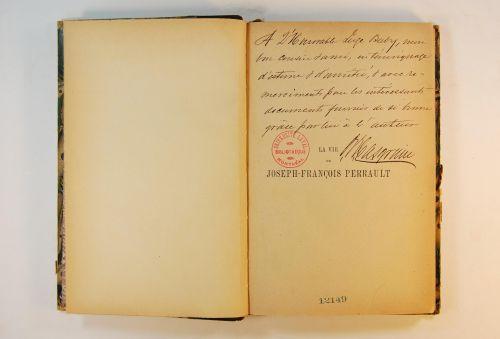 A L'Honorable Juge Baby, mon
bon cousin & ami, en témoignage
d'estime & d'amitié, & avec re-
merciments pour les intéressants
documents fournis de si bonne
grâce par lui à l'auteur
UNIVERSITÉ LAVAL
BIBLIOTHÈQUE
MONTRÉAL
LA VIE
DE
JOSEPH-FRANÇOIS PERRAULT
12149